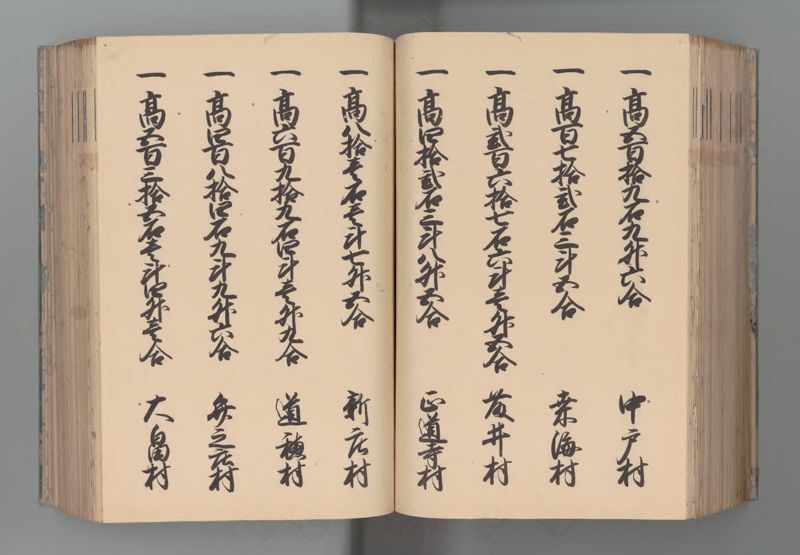 一高五百拾九石九升六合 中戸村
一高百七拾弐石三斗五合 桑海村
一高弐百六拾七石六斗壱升五合 藤井村
一高四拾弐石三斗八升五合 正道寺村
一高八拾壱石壱斗七升五合 新庄村
一高六百九拾九石四斗壱升九合 道穂村
一高四百八拾四石九斗九升六合 弁之庄村
一高五百三拾五石壱斗四升壱合 大畠村